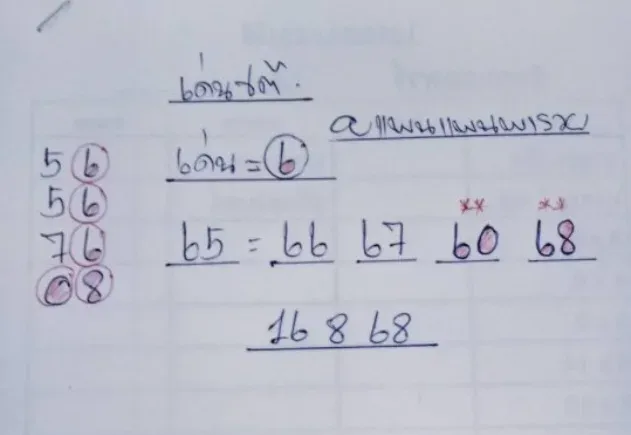 เด่นชต๊.
อ.แพนแพนพารวย
เด่น = 6
56
56
76
08
65 = 66 67 60 68
** **
16 8 68